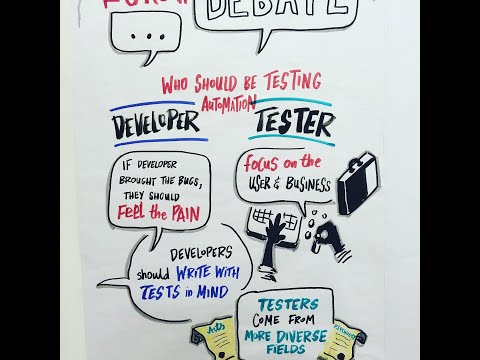 DEBATE
...
WHO SHOULD BE TESTING
AUTOMATION
DEVELOPER
TESTER
IF DEVELOPER
BROUGHT THE BUGS,
THEY SHOULD
FEEL the PAIN
focus on the
USER & BUSINESS
DEVELOPERS
should WRITE WITH
TESTS in MIND
TESTERS
COME FROM
MORE DIVERSE
FIELDS